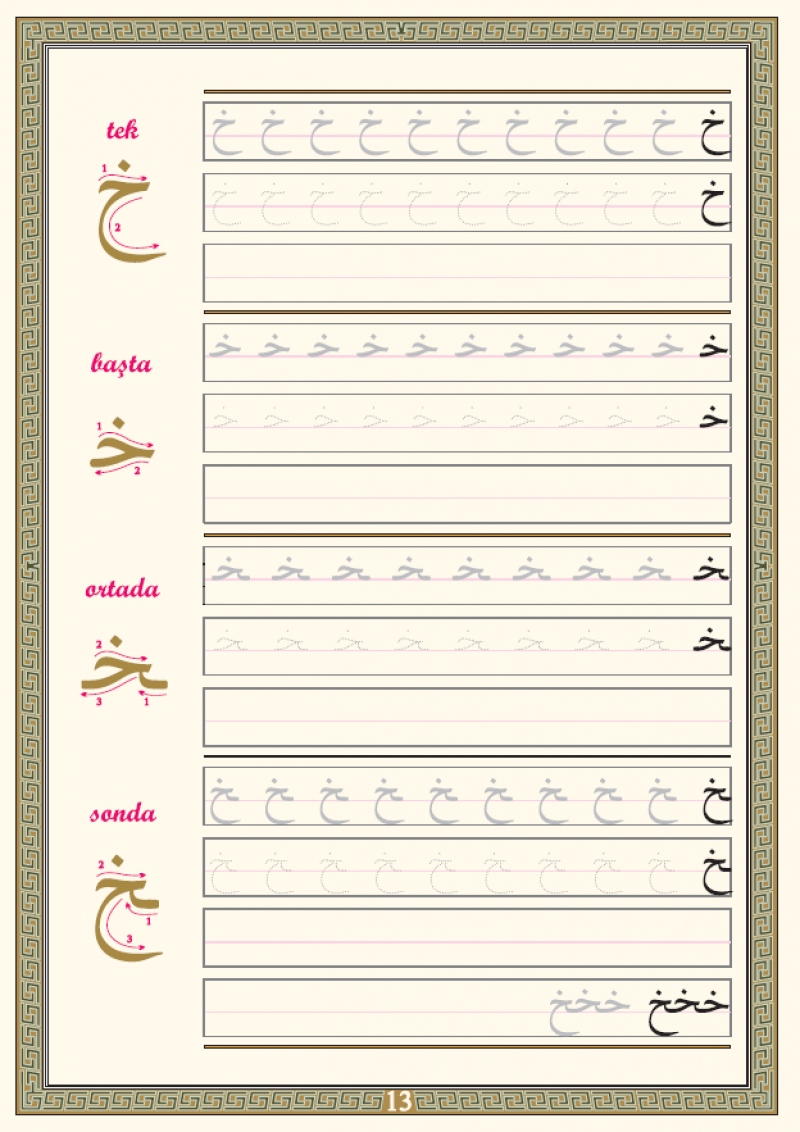 tek
1
2
خ خ خ خ خ خ خ خ خ خ خ
خ خ خ خ خ خ خ خ خ خ خ
başta
1
2
خـ خـ خـ خـ خـ خـ خـ خـ خـ خـ خـ
خـ خـ خـ خـ خـ خـ خـ خـ خـ خـ خـ
ortada
2
3 1
ـخـ ـخـ ـخـ ـخـ ـخـ ـخـ ـخـ ـخـ ـخـ
ـخـ ـخـ ـخـ ـخـ ـخـ ـخـ ـخـ ـخـ ـخـ
sonda
2
1
3
ـخ ـخ ـخ ـخ ـخ ـخ ـخ ـخ ـخ ـخ
ـخ ـخ ـخ ـخ ـخ ـخ ـخ ـخ ـخ ـخ
خخخ خخخ
13